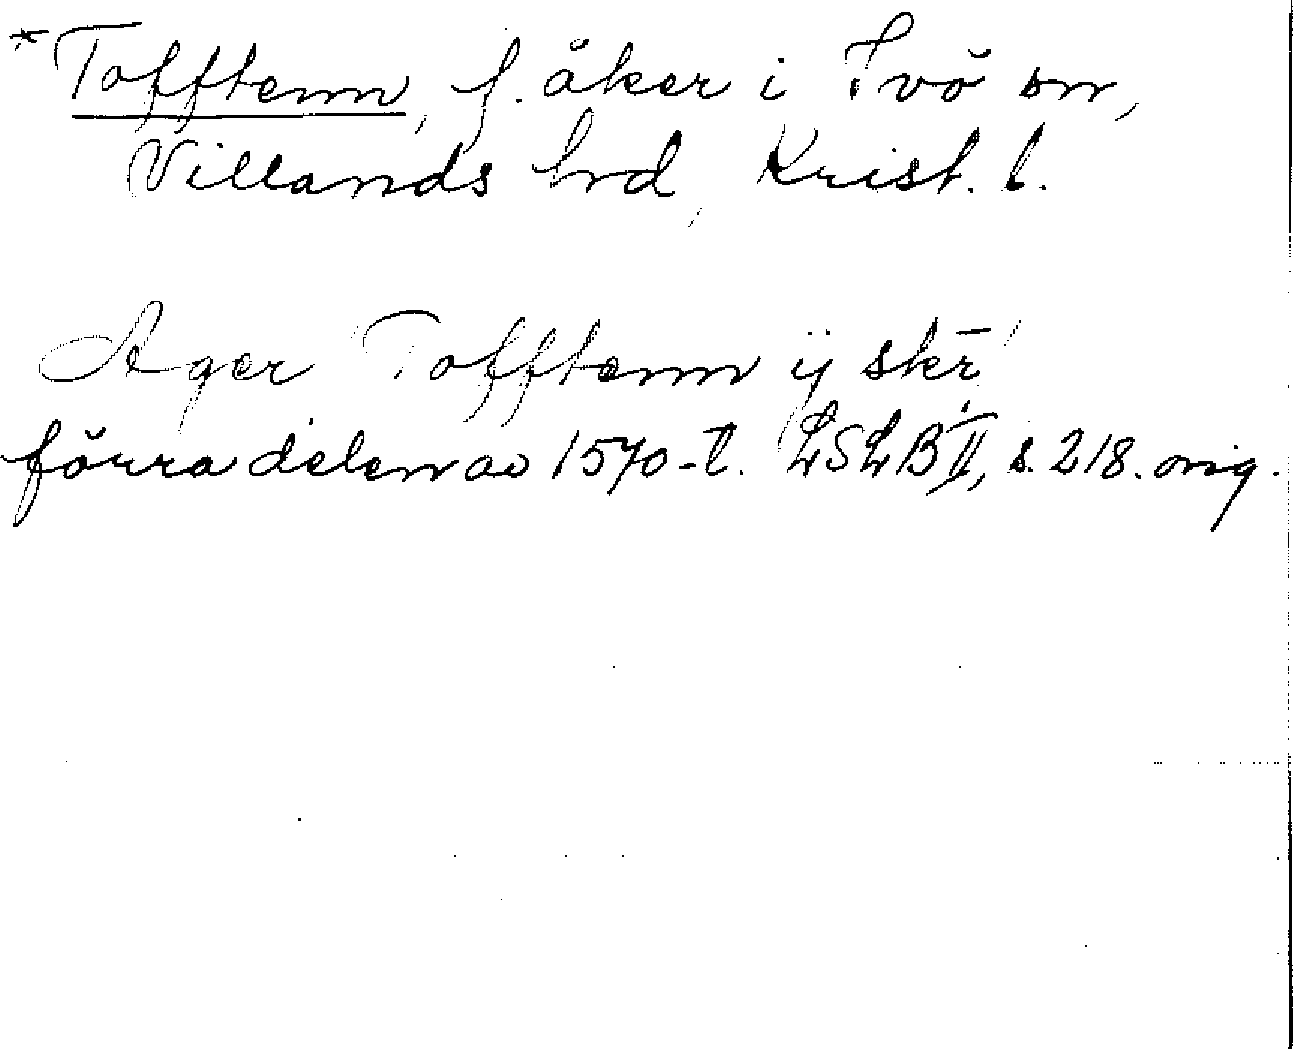 *Tofftenn, f. åker i Ivö sn,
Villands hrd, Krist. l.
Ager Tofftenn ij skr̄
förra delen av 1570-t. LSLB II, s. 218. orig.